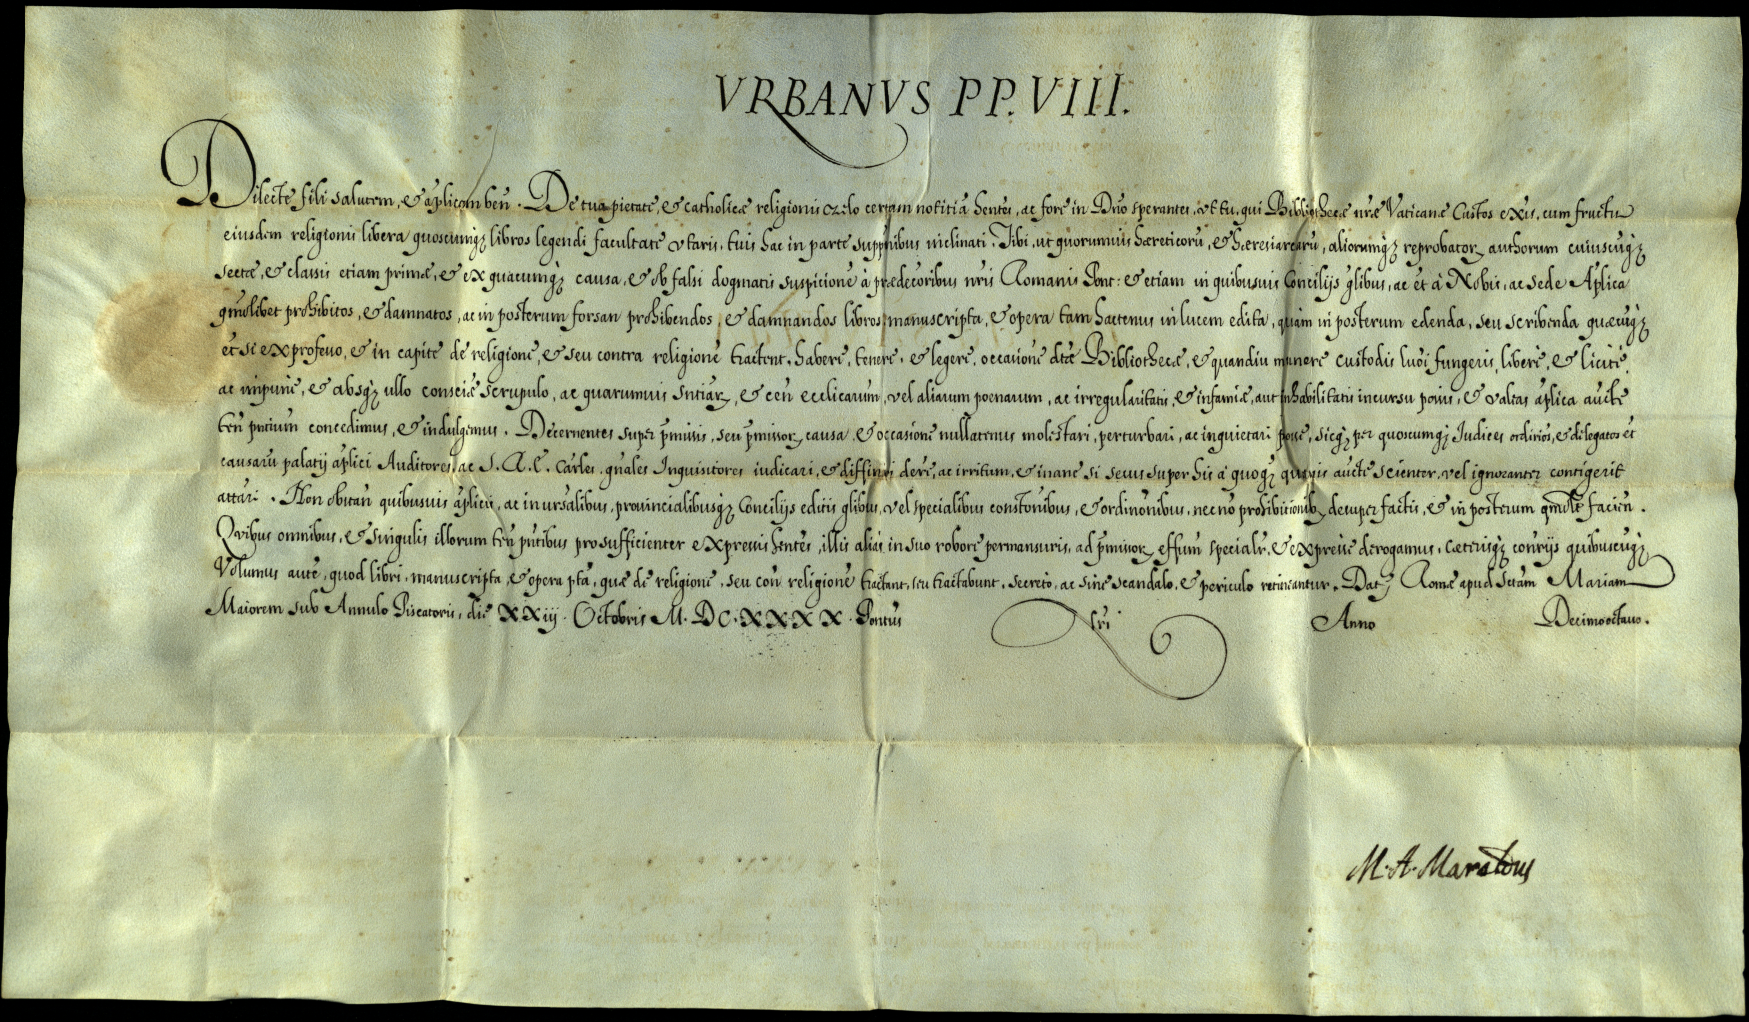 VRBANVS PP. VIII.
Dilecte fili salutem, & aplicam ben̄. De tua pietate, & catholicæ religionis zelo certam notitiā hentes, ac fore in Dn̄o sperantes, vt tu, qui Bibliothecæ nr̄æ Vaticanæ Custos exis, cum fructu
eiusdem religionis libera quoscumq; libros legendi facultate vtaris, tuis hac in parte supp̄nibus inclinati. Tibi, ut quorumuis hæreticorū, & hæresiarcarū, aliorumq; reprobator; authorum cuiuscumq;
sectæ, & classis etiam primæ, & ex quacumq; causa, & ob falsi dogmatis suspicionē à prædecoribus nr̄is Romanis Pont: & etiam in quibusuis Concilijs gl̄ibus, ac et à Nobis, ac Sede Ap̄lica
qm̄olibet prohibitos, & damnatos, ac in posterum forsan prohibendos, & damnandos libros, manuscripta, & opera tam hactenus in lucem edita, quàm in posterum edenda, seu scribenda quæcumq;
et si ex professo, & in capite de religione, & seu contra religionē tractent, habere, tenere, & legere, occasione dt̄æ Bibliothecæ, & quandiu munere custodis hm̄oi fungeris, liberè, & licitè,
ac impunè, & absq; ullo consciæ scrupulo, ac quarumuis sn̄tiar;, & cen̄ eccl̄icarum, vel aliarum poenarum, ac irregularitatis, & infamiæ, aut inhabilitatis incursu possis, & valeas ap̄lica aucte
ten̄ pn̄tium concedimus, & indulgemus. Decernentes super p̄missis, seu p̄missor; causa, & occasione nullatenus molestari, perturbari, ac inquietari posse, sicq; per quoscumq; Iudices ordīrios, & delegatos et
causarū palatij ap̄lici Auditores, ac S. R. E. Car̄les, gn̄ales Inquisitores iudicari, & diffiniri debere, ac irritum, & inane si secus super his à quoq; quauis aucte scienter, vel ignoranter contigerit
attari. Non obstan̄ quibusuis ap̄licis, ac in vn̄salibus, prouincialibusq; Concilijs editis gl̄ibus, vel specialibus const̄onibus, & ordin̄onibus, necnō prohibicionib; desuper factis, & in posterum qm̄olt facien̄.
Quibus omnibus, & singulis illorum ten̄ pn̄tibus pro sufficienter expressis hentes, illis aliàs in suo robore permansuris, ad p̄missor; effum specialr, & expressè derogamus, cæterisq; conr̄ijs quibuscumq;.
Volumus autē, quod libri, manuscripta, & opera p̄ta, quæ de religione, seu con̄ religionē tractant, seu tractabunt, secretò, ac sine scandalo, & periculo retineantur. Dat; Romæ apud Sctam Mariam
Maiorem sub Annulo Piscatoris, die XXiij. Octobris M. DC. XXXX. Pontus nr̄i Anno Decimooctauo.
M. A. Maraldus